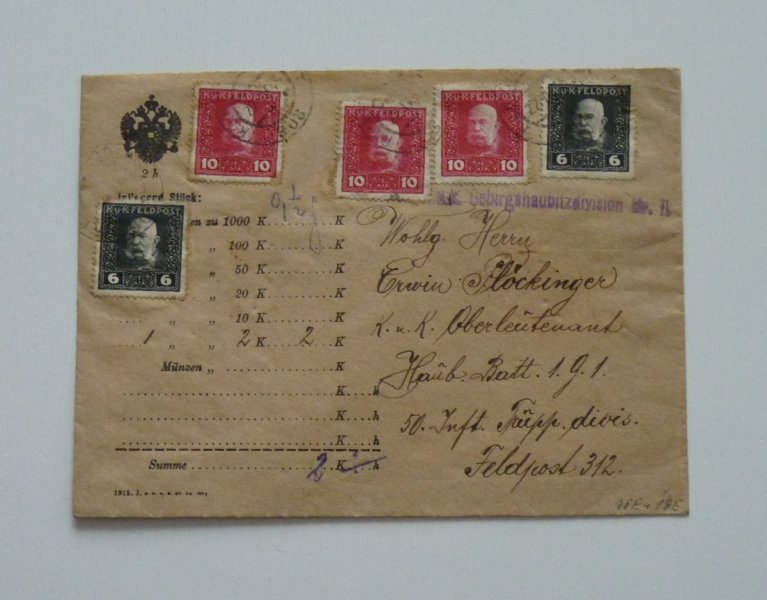 K.u.K.FELDPOST
10 10
K.u.K.FELDPOST
10 10
K.u.K.FELDPOST
10 10
K.u.K.FELDPOST
6 6
K.u.K.FELDPOST
6 6
2 h
Stück:
zu 1000 K K
„ 100 K K
„ 50 K K
„ 20 K K
„ „ 10 K K
1 „ „ 2 K 2 K
Münzen „ K
K h
K h
K h
Summe 2 K h
1915. I.
Gebirgshaubitzdivision Nr.
Wohlg. Herrn
Erwin Plöckinger
K. u. K. Oberleutenant
Haub. Batt. 1.91.
50. Inft. Trüpp. divis.
Feldpost 312.